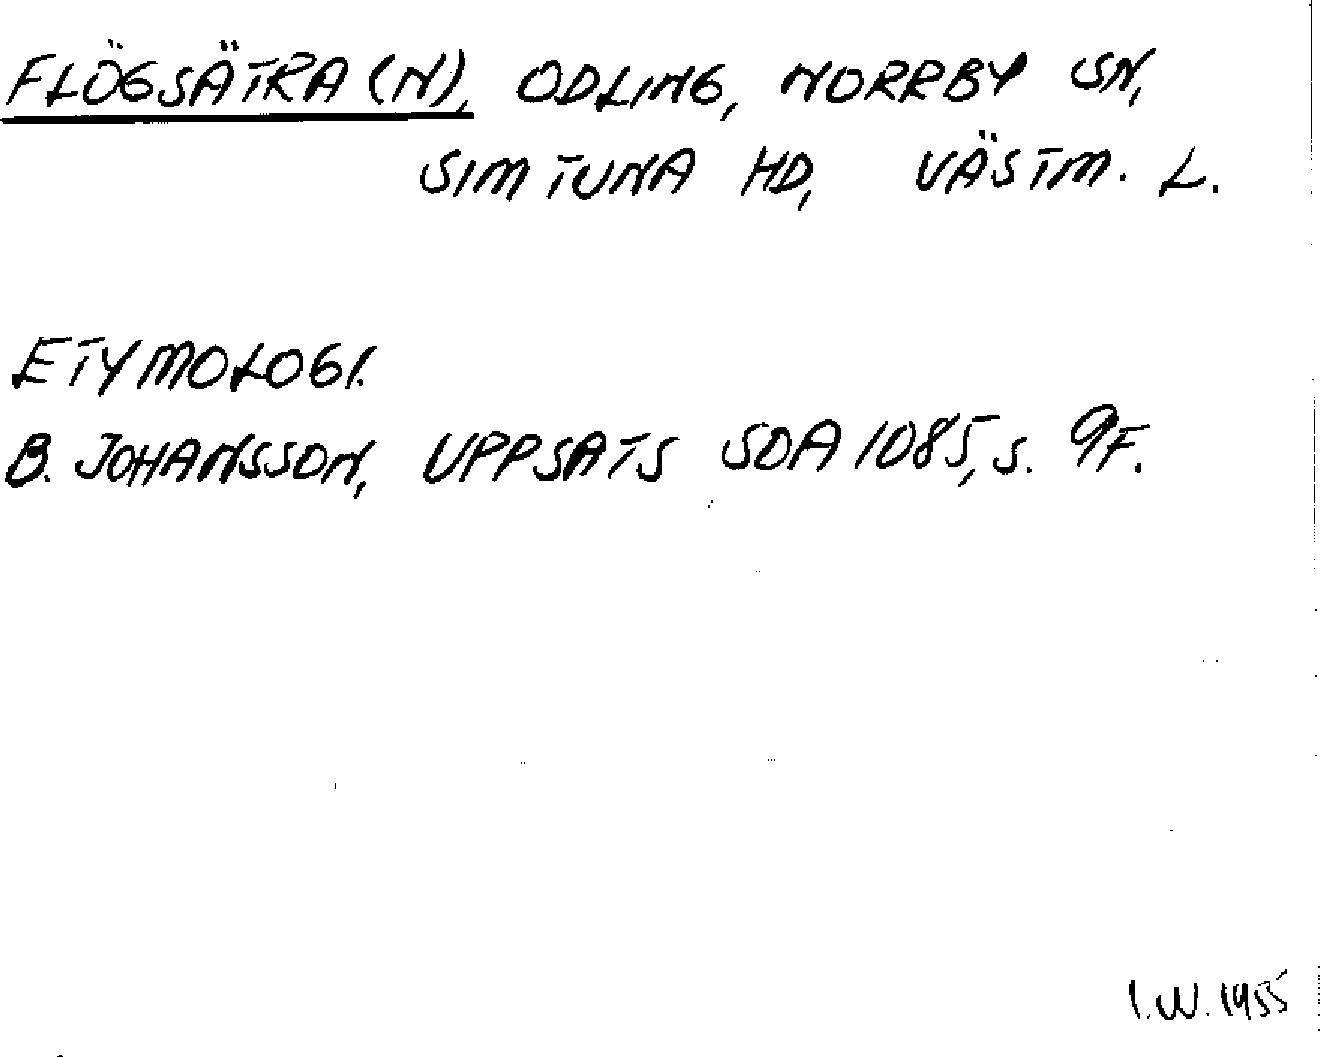 FLÖGSÄTRA (N), ODLING, NORRBY SN,
SIMTUNA HD, VÄSTM. L.
ETYMOLOGI.
B. JOHANSSON, UPPSATS SOA 1085, S. 9F.
I.W. 1955